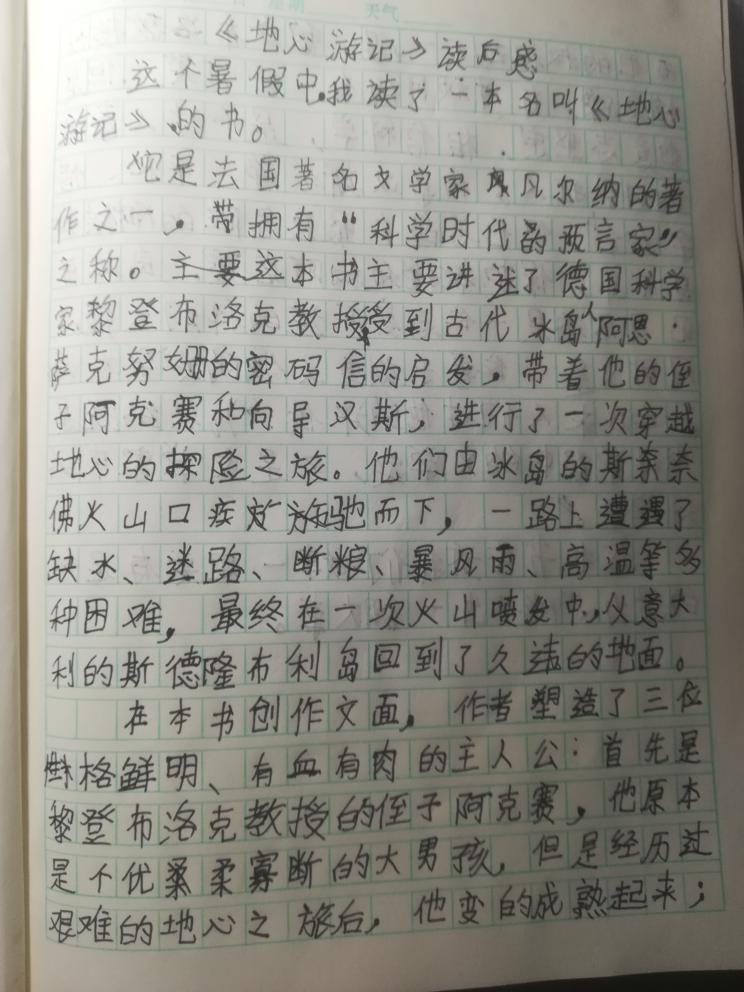 星期 天气
《地心游记》读后感
这个暑假中,我读了一本名叫《地心
游记》的书。
它是法国著名文学家凡尔纳的著
作之一，带拥有“科学时代的预言家”
之称。主要这本书主要讲述了德国科学
家黎登布洛克教授受到古代冰岛人阿恩·
萨克努姗的密码信的启发，带着他的侄
子阿克赛和向导汉斯，进行了一次穿越
地心的探险之旅。他们由冰岛的斯奈奈
佛火山口疾驰而下，一路上遭遇了
缺水、迷路、断粮、暴风雨、高温等多
种困难，最终在一次火山喷发中，从意大
利的斯德隆布利岛回到了久违的地面。
在本书创作文面，作者塑造了三位
性格鲜明、有血有肉的主人公：首先是
黎登布洛克教授的侄子阿克赛，他原本
是个优柔寡断的大男孩，但是经历过
艰难的地心之旅后，他变的成熟起来；